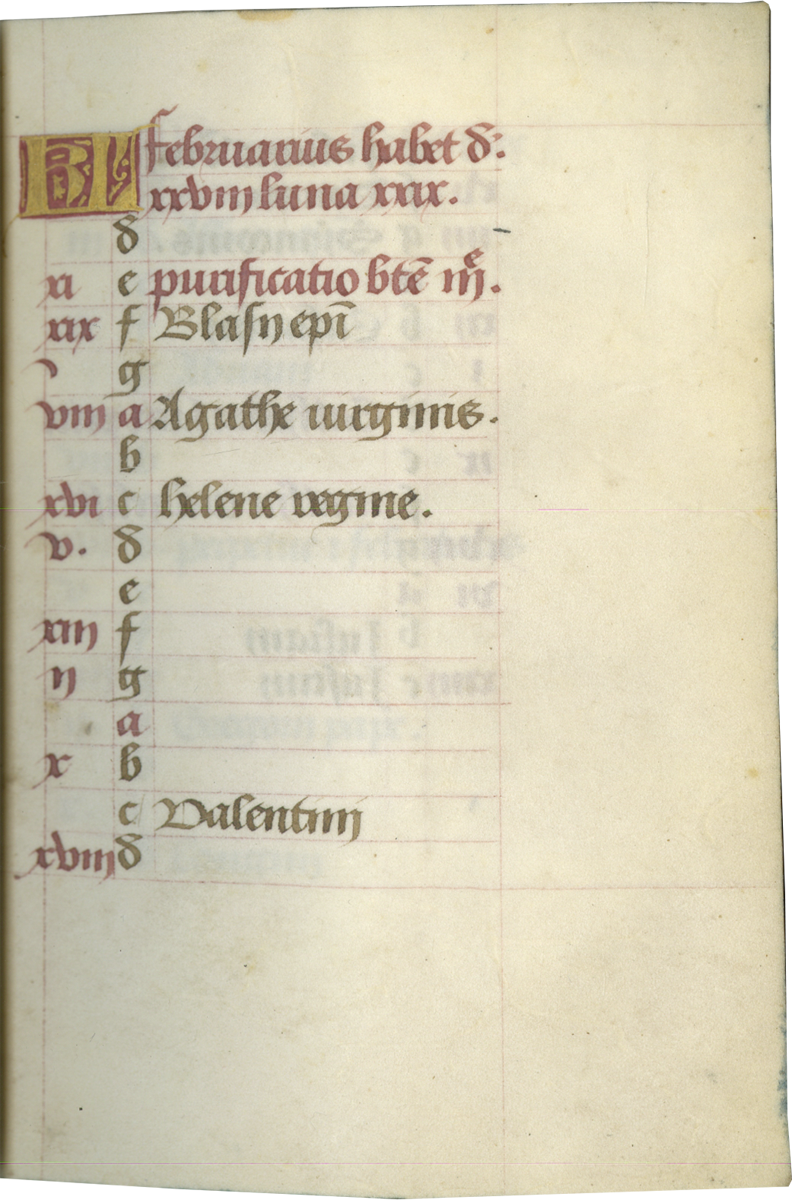 KL februarius habet d:
xxviii luna xxix.
d
xi e purificatio bte m.
xix f Blasij epi
g
viii a Agathe uirginis.
b
xvi c helene regine.
v. d
e
xiii f
ij g
a
x b
c Valentini
xviii d